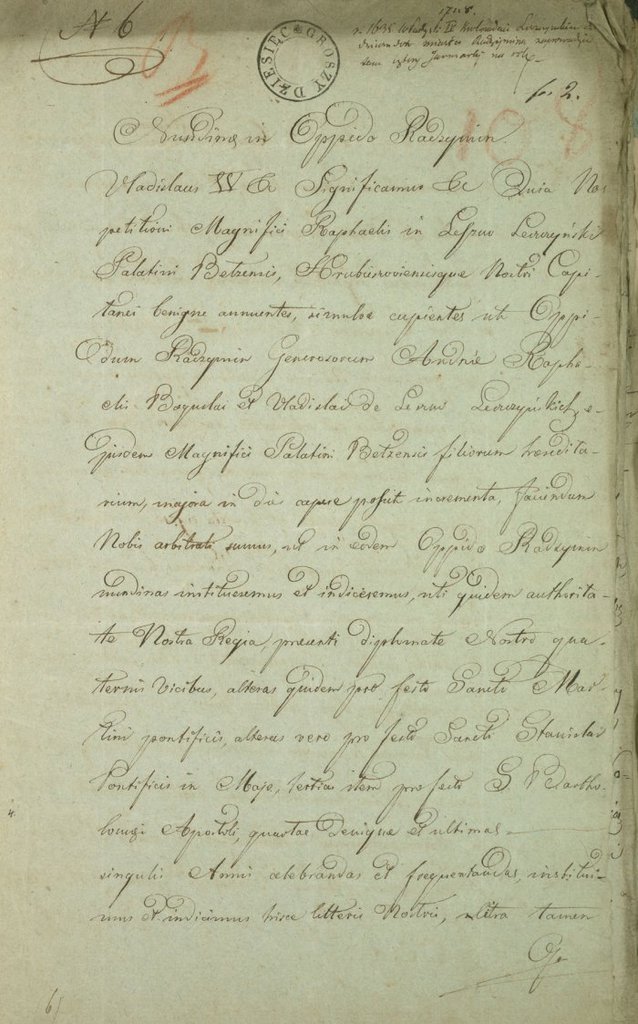 N 6
DZIESIĘC GROSZY
1728
r. 1635 Władysł. IV
miasta Radzymina
Jarmarki na rok
fr. 2.
Nundinæ in Oppido Radzymin.
Vladislaus IV &c Significamus &c Quia Nos
petitioni Magnifici Raphaelis in Leszno Leszczyński
Palatini Betzensis, Hrubiesoviensisque Nostri Capi-
tanei benigne annuentes, simulve cupientes ut Oppi-
dum Radzymin Generosorum Andriæ Rapha-
elis Boguslai et Vladislai de Leszno Leszczyńskich, e-
jusdem Magnifici Palatini Betzensis filiorum hæredita-
rium, majora in dies capere possit incrementa, faciendum
Nobis arbitrati sumus, ut in eodem Oppido Radzymin
nundinas institueremus et indiceremus, uti quidem authorita-
te Nostra Regia, præsenti diplomate Nostro qua-
ternis vicibus, alteras quidem pro festo Sancti Mar-
tini pontificis, alteras vero pro festo Sancti Stanislai
Pontificis in Majo, tertias item pro festo S Bartho-
lomæi Apostoli, quartas denique et ultimas
singulis Annis celebrandas et frequentandas, institui-
mus et indicimus hisce litteris Nostris, ultra tamen